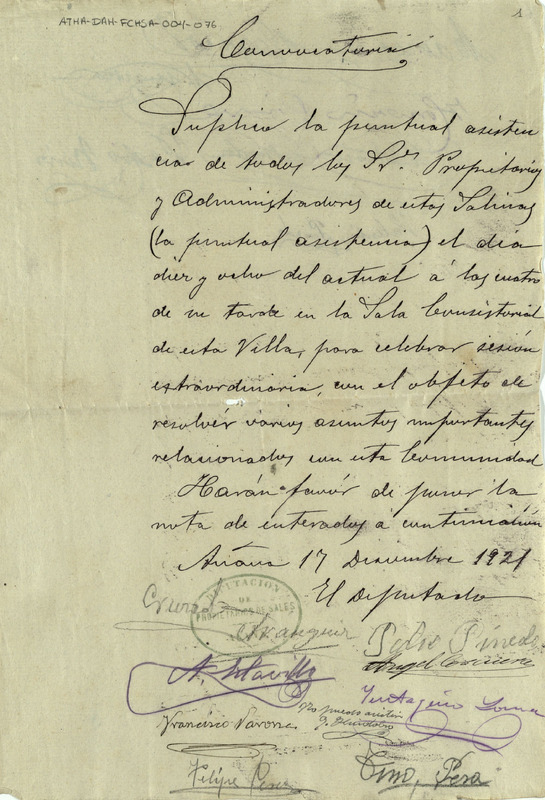 ATHA-DAH-FCHSA-004-076
1
Convocatoria
Suplico la puntual asisten
cia de todos los Sres Propietarios
y Administradores de estas Salinas
(la puntual asistencia) el día
diez y ocho del actual á las cuatro
de su tarde en la Sala Consistorial
de esta Villa, para celebrar sesión
extraordinaria, con el objeto de
resolver varios asuntos importantes
relacionados con esta Comunidad
Harán favór de poner la
nota de enterados á continuación
Añana 17 Diciembre 1921
El Diputado
DIPUTACION
DE
PROPIETARIOS DE SALES
Pedro Pinedo
Angel
Francisco Varona
No puedo asistir
Felipe